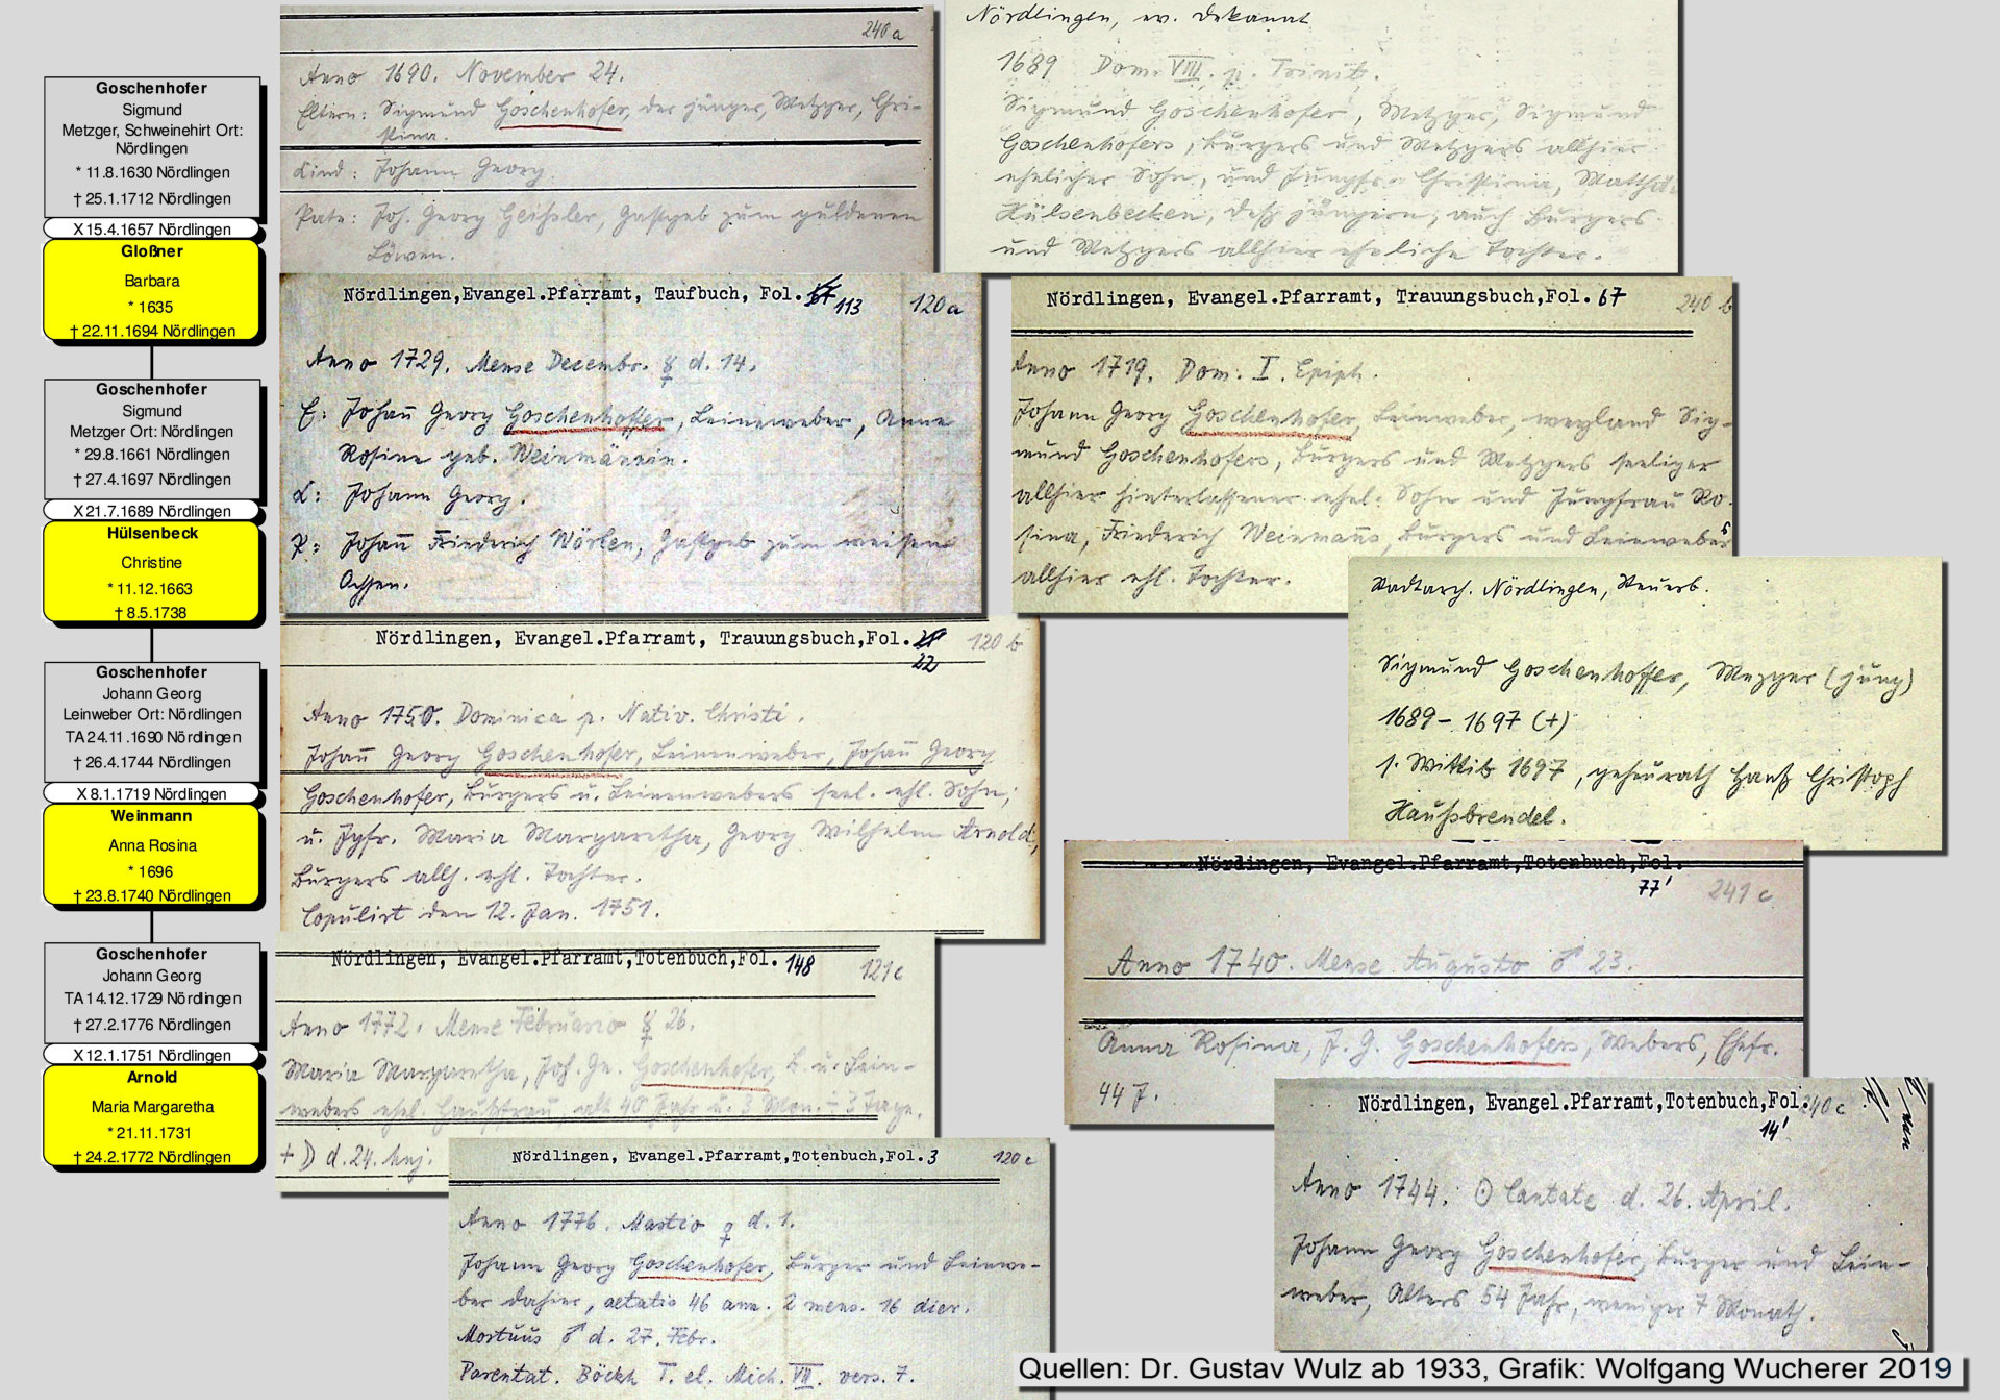 Goschenhofer
Sigmund
Metzger, Schweinehirt Ort:
Nördlingen
* 11.8.1630 Nördlingen
† 25.1.1712 Nördlingen
X 15.4.1657 Nördlingen
Gloßner
Barbara
* 1635
† 22.11.1694 Nördlingen
Goschenhofer
Sigmund
Metzger Ort: Nördlingen
* 29.8.1661 Nördlingen
† 27.4.1697 Nördlingen
X 21.7.1689 Nördlingen
Hülsenbeck
Christine
* 11.12.1663
† 8.5.1738
Goschenhofer
Johann Georg
Leinweber Ort: Nördlingen
TA 24.11.1690 Nördlingen
† 26.4.1744 Nördlingen
X 8.1.1719 Nördlingen
Weinmann
Anna Rosina
* 1696
† 23.8.1740 Nördlingen
Goschenhofer
Johann Georg
TA 14.12.1729 Nördlingen
† 27.2.1776 Nördlingen
X 12.1.1751 Nördlingen
Arnold
Maria Margaretha
* 21.11.1731
† 24.2.1772 Nördlingen
240 a
Anno 1690. November 24.
Eltern: Sigmund Goschenhofer, der jünger, Metzger, Chri-
stina.
Kind: Johann Georg.
Pate: Joh. Georg Geißler, Gastgeb zum guldenen
Löwen.
Nördlingen, ev. Dekanat
1689 Dom. VIII. p. Trinit.
Sigmund Goschenhofer, Metzger, Sigmund
Goschenhofers, Burgers und Metzgers allhier
ehelicher Sohn, und Jungfr. Christina,
Hülsenbecken, deß jüngern, auch Burgers
und Metzgers allhier eheliche Tochter.
Nördlingen, Evangel.Pfarramt, Taufbuch, Fol. 113 120 a
Anno 1729. Mense Decembr. ☿ d. 14.
E: Johañ Georg Goschenhoffer, Leineweber, Anna
Rosina geb. Weinmännin.
K: Johann Georg.
P: Johañ Friederich Wörlen, Gastgeb zum weißen
Ochsen.
Nördlingen, Evangel.Pfarramt, Trauungsbuch,Fol. 67 240 b
Anno 1719. Dom: I. Epiph.
Johann Georg Goschenhofer, Leinweber, weyland Sig-
mund Goschenhofers, Burgers und Metzgers seeliger
allhier hinterlassener ehel: Sohn und Jungfrau Ro-
sina, Friederich Weinmanns, Burgers und Leinwebers
allhier ehl. Tochter.
Stadtarch. Nördlingen, Steuerb.
Sigmund Goschenhoffer, Mezger (jung)
1689 - 1697 (+)
s. Wittib 1697, geheurath Hanß Christoph
Haußbrendel.
Nördlingen, Evangel.Pfarramt, Trauungsbuch,Fol. 22 120 b
Anno 1750. Dominica p. Nativ. Christi.
Johañ Georg Goschenhofer, Leinenweber, Johañ Georg
Goschenhofer, Burgers u. Leinenwebers seel. ehl. Sohn;
u. Jgfr. Maria Margaretha, Georg Wilhelm Arnold,
Burgers allh. ehl. Tochter.
Copulirt den 12. Jan. 1751.
Nördlingen, Evangel.Pfarramt,Totenbuch,Fol. 77' 241 c
Anno 1740. Mense Augusto ♂ 23.
Anna Rosina, J. G. Goschenhofers, Webers, Ehefr.
44 J.
Nördlingen, Evangel.Pfarramt,Totenbuch,Fol. 148 121 c
Anno 1772. Mense Februario ☿ 26.
Maria Margaretha, Joh. Ge. Goschenhofer, B. u. Lein-
webers ehel. Haußfrau, alt 40 Jahr u. 3 Mon. 3 Tage.
+ ☽ d. 24. huj.
Nördlingen, Evangel.Pfarramt,Totenbuch,Fol. 14' 240 c
Anno 1744. ☉ Cantate d. 26. April.
Johann Georg Goschenhofer, Burger und Lein-
weber, Alters 54 Jahr, weniger 7 Monath.
Nördlingen, Evangel.Pfarramt,Totenbuch,Fol. 3 120 c
Anno 1776. Martio ♀ d. 1.
Johann Georg Goschenhofer, Burger und Leinwe-
ber dahier, aetatis 46 ann. 2 mens. 16 dier.
Mortuus ♂ d. 27. Febr.
Parentat. Böckh T. el. Mich. VII. vers. 7.
Quellen: Dr. Gustav Wulz ab 1933, Grafik: Wolfgang Wucherer 2019